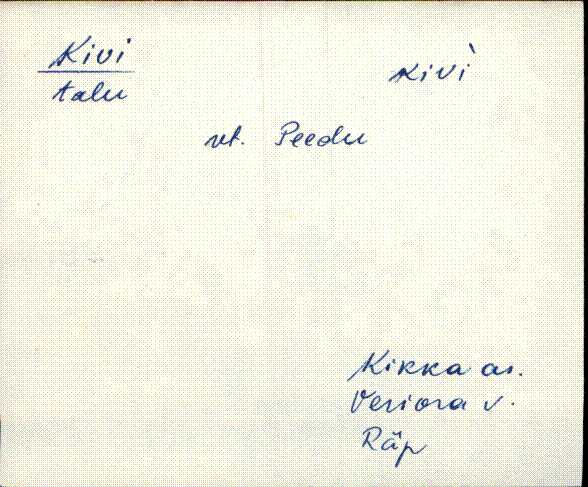 Kivi kivì
talu
vt. Peedu
Kikka as.
Veriora v.
Räp